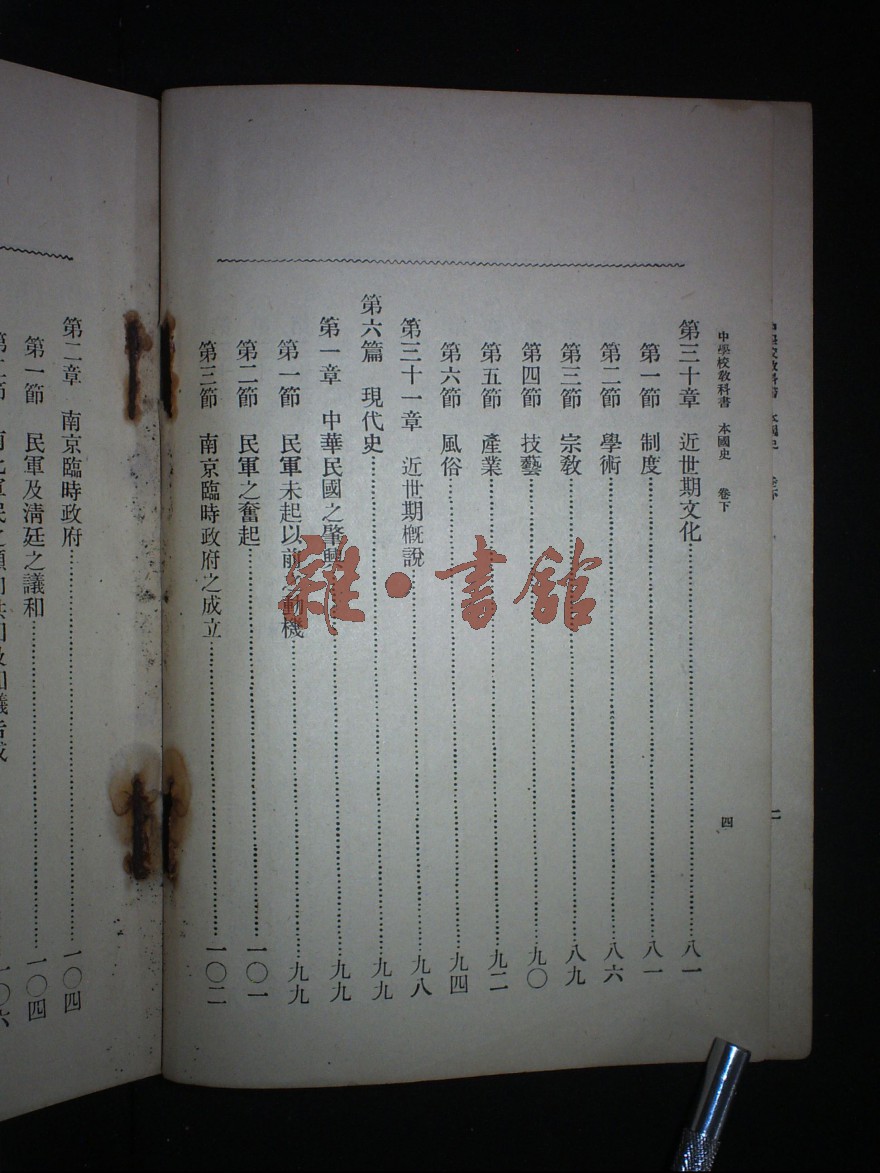 中學校教科書 本國史 卷下 四
第三十章 近世期文化 八一
第一節 制度 八一
第二節 學術 八六
第三節 宗教 八九
第四節 技藝 九〇
第五節 產業 九二
第六節 風俗 九四
第三十一章 近世期概說 九八
第六篇 現代史 九九
第一章 中華民國之肇興 九九
第一節 民軍未起以前之動機 九九
第二節 民軍之奮起 一〇一
第三節 南京臨時政府之成立 一〇二
第二章 南京臨時政府 一〇四
第一節 民軍及清廷之議和 一〇四
雜·書館